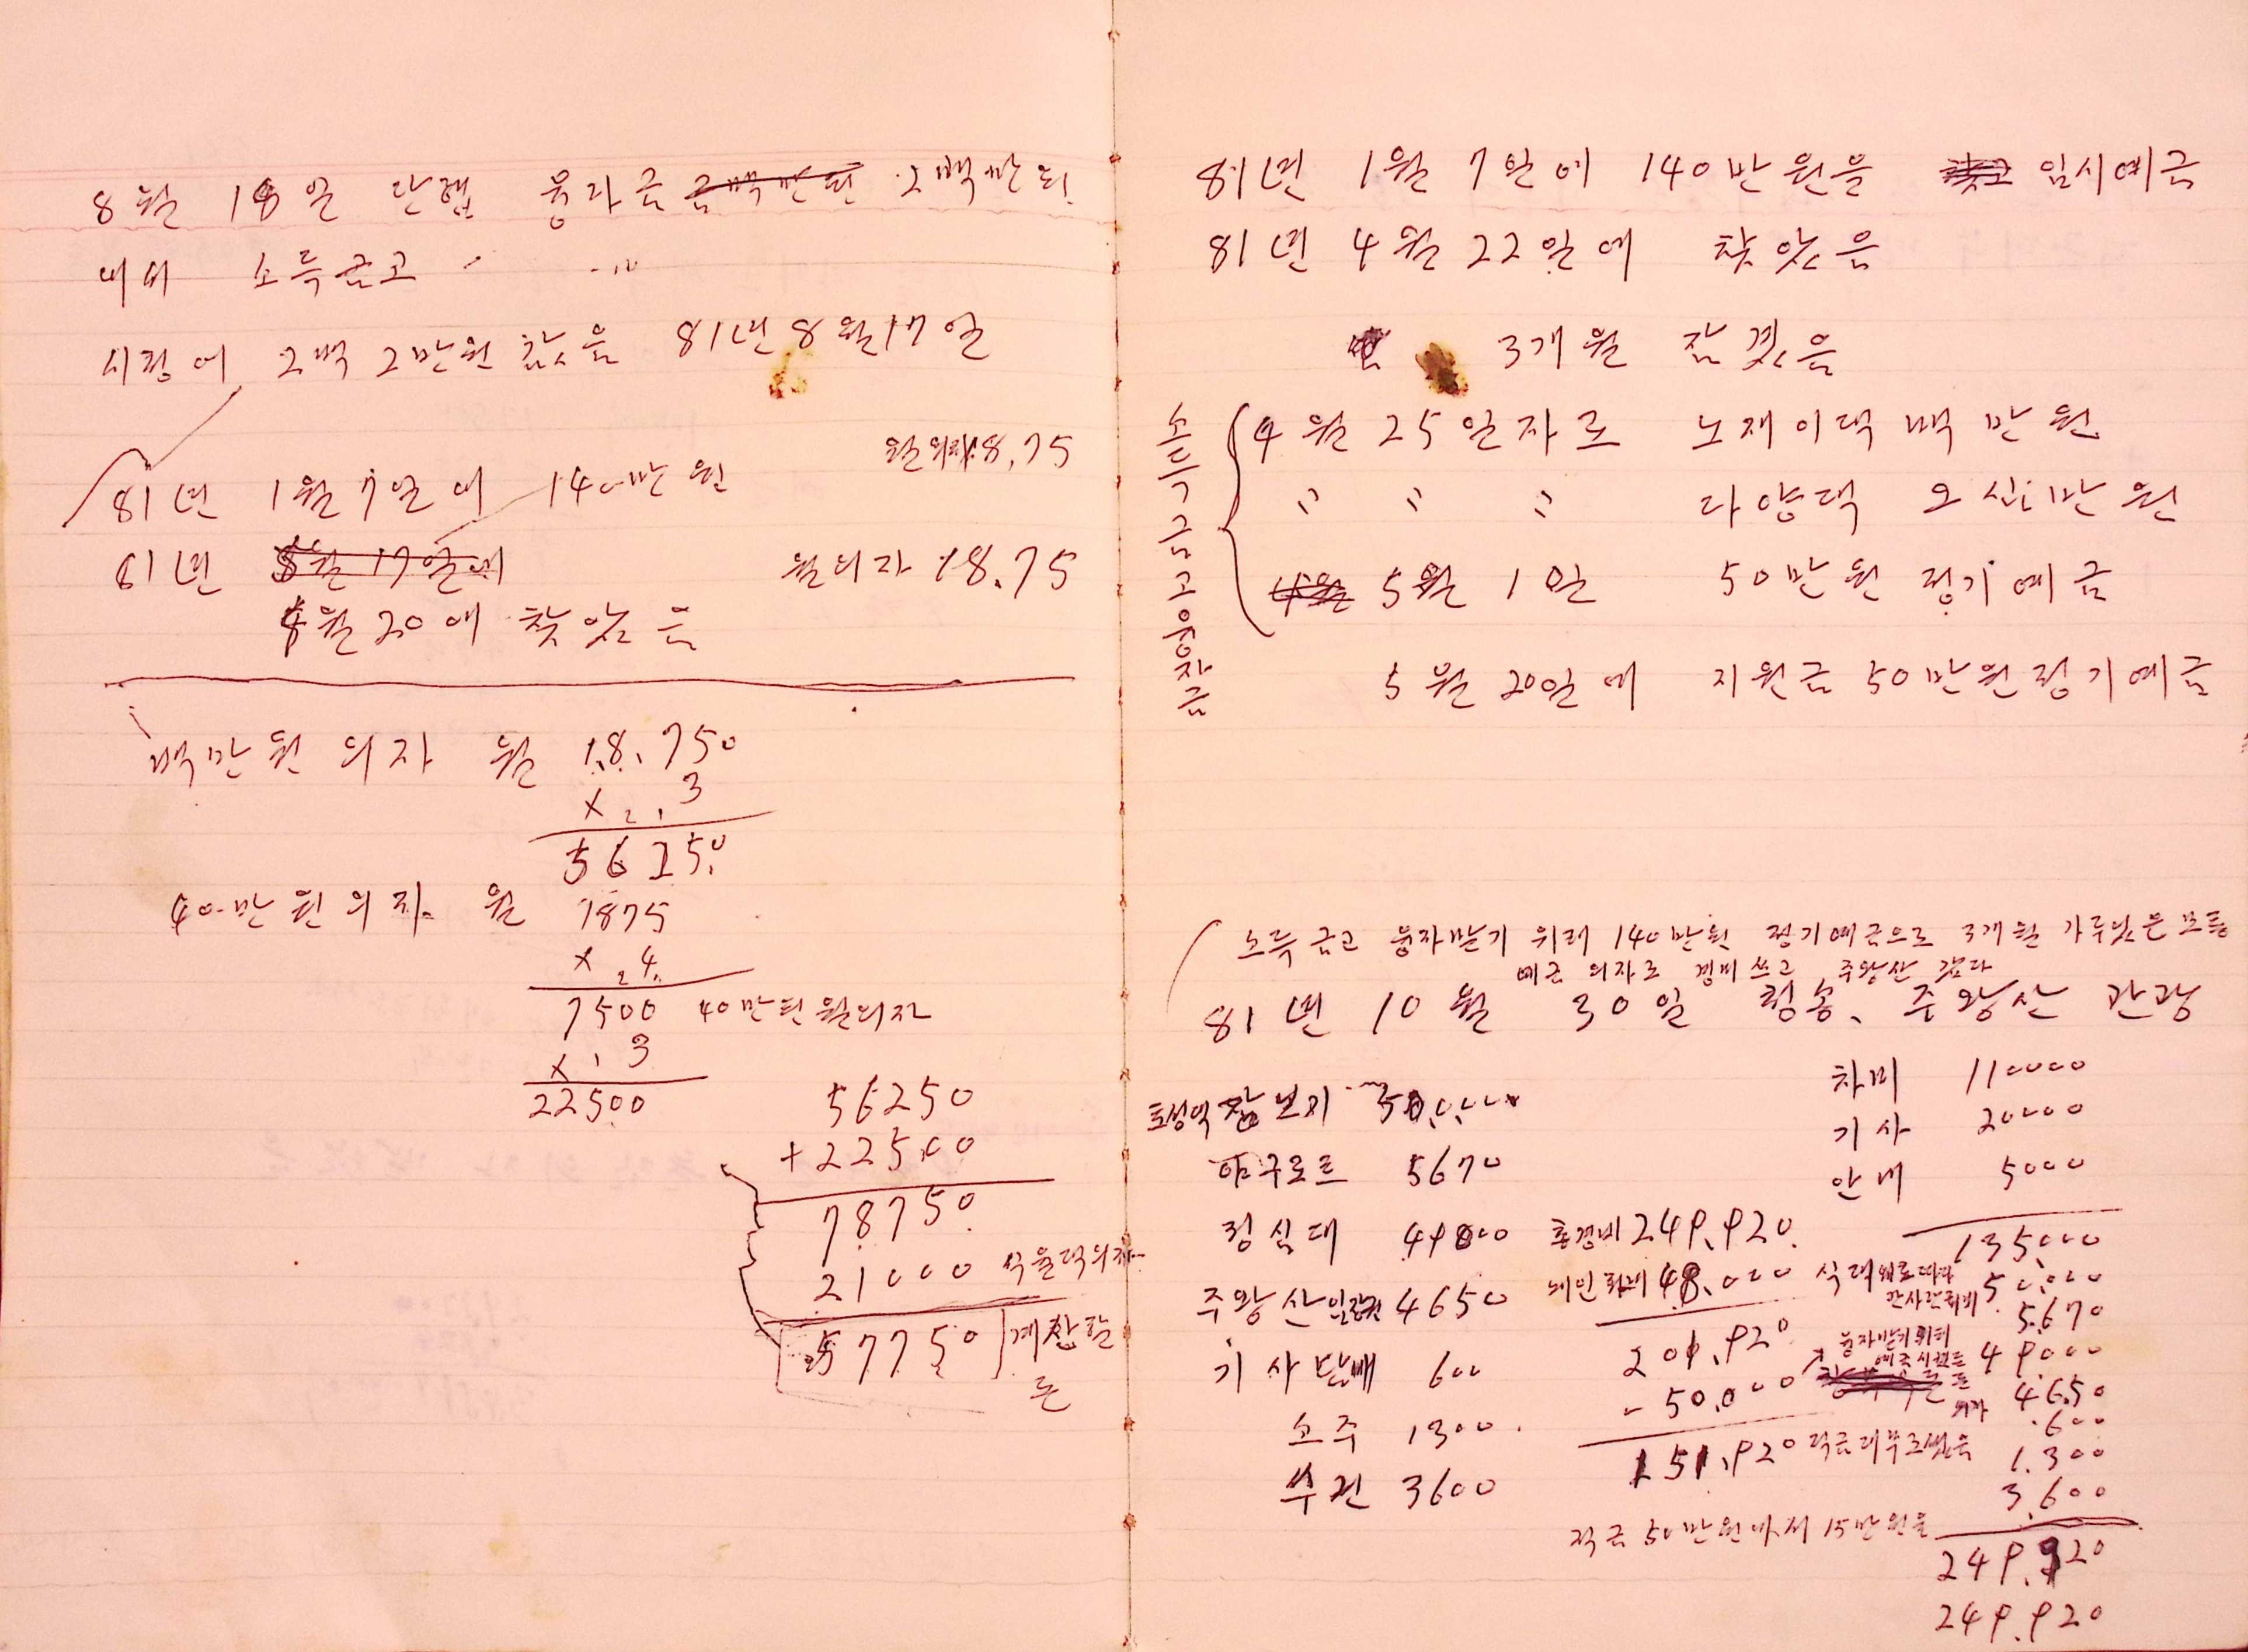 8월 18일 단협 융자금 2백만원
내버 소득금고
시정에 2백 2만원 찾음 81년 8월 17일
월의자 18,75
81년 1월 7일에 140만원
81년 8월 17일에 월의자 18.75
4월 20에 찾았음
백만원 의자 월 18.750
x 3
56250
40만원 의자 월 1875
x 4
7500 40만원 월의자
x 3
22500
56250
+22500
78750
21000
57750 계산할
돈
81년 1월 7일에 140만원을 임시예금
81년 4월 22일에 찾았음
3개월 잠겼음
소득금고융자금
4월 25일자로 노재이댁 백만원
" " " 다양댁 오십만원
4월 5월 1일 50만원 정기예금
5월 20일에 지원금 50만원 정기예금
소득금고 융자받기 위해 140만원 정기예금으로 3개월 가두었든 모든
예금 의자로 경비쓰고 주왕산 갔다
81년 10월 30일 청송、주왕산 관광
차비 110000
기사 20000
안내 5000
135,000
장보기 50,000
야구르트 5670
점심대 49000
주왕산입장권 4650
기사담배 600
소주 1300
수건 3600
총경비 249,920
48,000
201,920
- 50,000
151,920
식대 50,000
5,670
융자받기위해
49000
4650
600
1.300
3,600
적금 50만원에서 15만원을
249.920
249.920